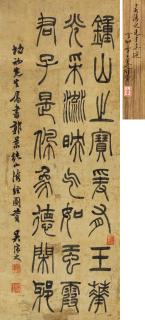 鍾山之寶爰有玉華
光采流映气如虹霞
君子是佩象德閑邪
先生屬書郭景純山海經圖贊 吳讓之